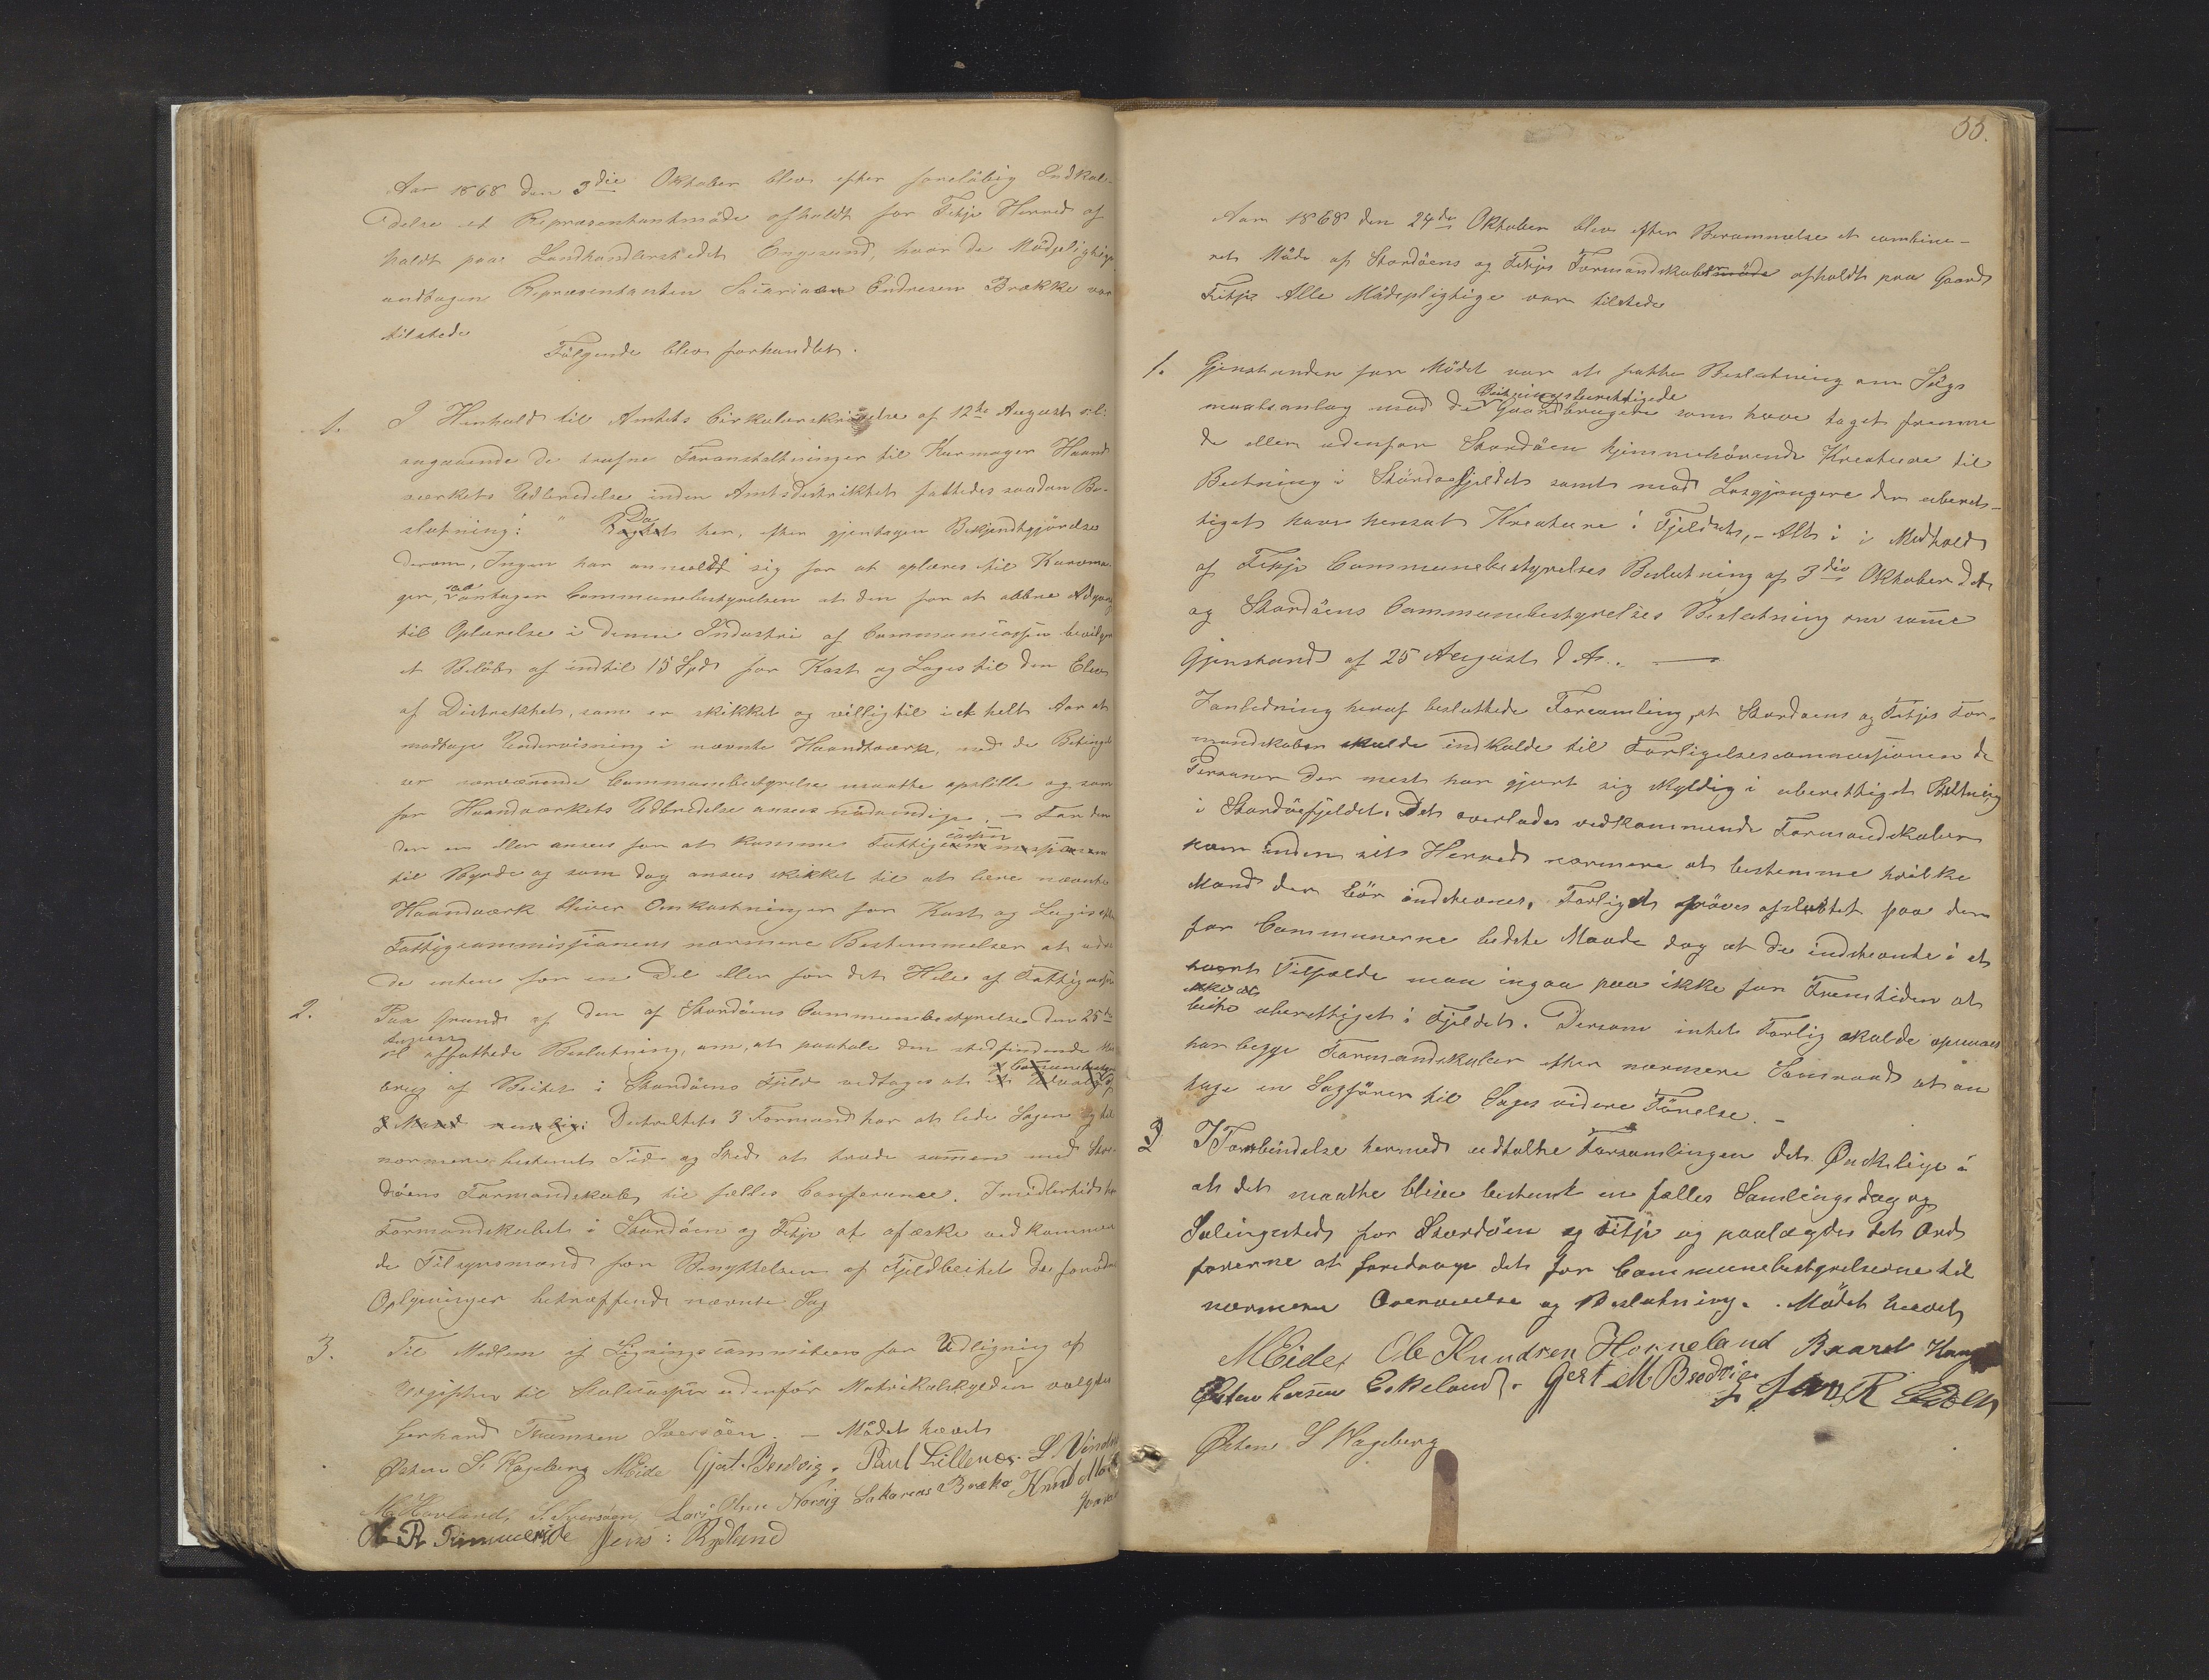 Aar 1868 den 3die Oktober blev efter foreløbig Indkal-
delse et Repræsentantmøde afholdt for Fitje Herred af
holdt paa Landhandlerstedet Engesund, hvor de Mødepligtige
undtagen Repræsentanten Sacarias Endresen Brække var
tilstede
Følgende blev forhandlet.
1. I Henhold til Amtets Cirkulærskrivelse af 12te August sil:
angaaende de trufne Foranstaltninger til Kurmager Haand
værkets Udbredelse inden Amtsdistriktet fattedes saadan Be-
slutning: " Da her, efter gjentagen Bekjendtgjørelse
derom, Ingen har anmeldt sig for at oplæres til Kurvma-
ger, saa antager Communebestyrelsen at den for at aabne Adgang
til Oplærelse i denne Industri af Communecassen bevilger
et Beløb af indtil 15 Spd for Kost og Logis til den Elev
af Distriktet, som er skikket og villig til i et helt Aar at
modtage Undervisning i nævnte Haandværk, med de Betingel
ser nærværende Communebestyrelse maatte opstille og som
for Haandværkets Udbredelse ansees nødvendige. – For den
der er eller ansees for at komme Fattigcassen
til Byrde og som dog ansees skikket til at lære nævnte
Haandværk bliver Omkostninger for Kost og Logis efter
Fattigcommissionens nærmere Bestemmelser at udre
de enten for en Del eller for det Hele af Fattigcassen
2. Paa Grund af den af Stordøens Communebestyrelse den 25te
affattede Beslutning, om, at paatale den stedfindende Mis
brug af Beitet i Stordøens Fjeld vedtages at
Distriktets 3 Formænd har at lede Sagen og til
nærmere bestemt Tid og Sted at træde sammen med Stor
døens Formandskab til fælles Conferance. Imidlertid har
Formandskabet i Stordøen og Fitje at afæske vedkommen
de Tilsynsmænd for Benyttelsen af Fjeldbeitet de fornødne
Oplysninger betræffende nævnte Sag
3. Til Medlem af Ligningscommiteen for Udligning af
Utgifter til Skolecassen udenfor Matrikulskylden valgtes
Gerhard Thomsen Iversøen. – Mødet hævet
Østen S. Hageberg MEide Gjert. Bredvig. Paul Lillenes. L Vindenes
M Hovland, T. Iversøen Lars Olsen Norvig Sakarias Brække Knud
O R Rimmereide Jens: Rydland
55.
Aar 1868 den 24de Oktober blev efter Berammelse et combine-
ret Møde af Stordøens og Fitjes Formandskaber afholdt paa Gaard
Fitje Alle Mødepligtige var tilstede
1. Gjenstanden for Mødet var at fatte Beslutning om Søgs
maalsanlag mod de Beitningsberettigede Gaardbrugere som have taget fremme
de eller udenfor Stordøen hjemmehørende Kreature til
Beitning i Stordøefjeldet samt mod Løsgjængere der uberet-
tiget have hensat Kreature i Fjeldet, – Alt i i Medhold
af Fitje Communebestyrelses Beslutning af 3die Oktober d.A.
og Stordøens Communebestyrelses Beslutning om samme
Gjenstand af 25 August d A. –
Ianledning heraf besluttede Forsamling, at Stordøens og Fitjes For-
mandskaber skulde indkalde til Forligelsescommissionen de
Personer der mest har gjort sig skyldig i uberettiget Beitning
i Stordøefjeldet. Det overlades vedkommende Formandskaber
hver inden sit Herred nærmere at bestemme hvilke
Mænd der bør indstevnes, Forliget prøves afsluttet paa den
for Communerne bedste Maade dog at de indstevnte i et
hvert Tilfælde maa ingaa paa ikke for Fremtiden at
beite uberettiget i Fjeldet. Dersom intet Forlig skulde opnaaes
har begge Formandskaber efter nærmere Samraad at an
tage en Sagfører til Sagens videre Førelse. –
2 I Forbindelse hermed udtalte Forsamlingen det Ønskelige i
at det maatte blive bestemt en fælles Samlingsdag og
Salingssted for Stordøen og Fitje og paalægdes det Ord
førerne at foredrage det for Communebestyrelserne til
nærmere Overveielse og Beslutning. Mødet hævet
MEide, Ole Knudsen Horneland Baard
Østen Larsen Eskeland. Gert M Bredvig
Østen S Hageberg